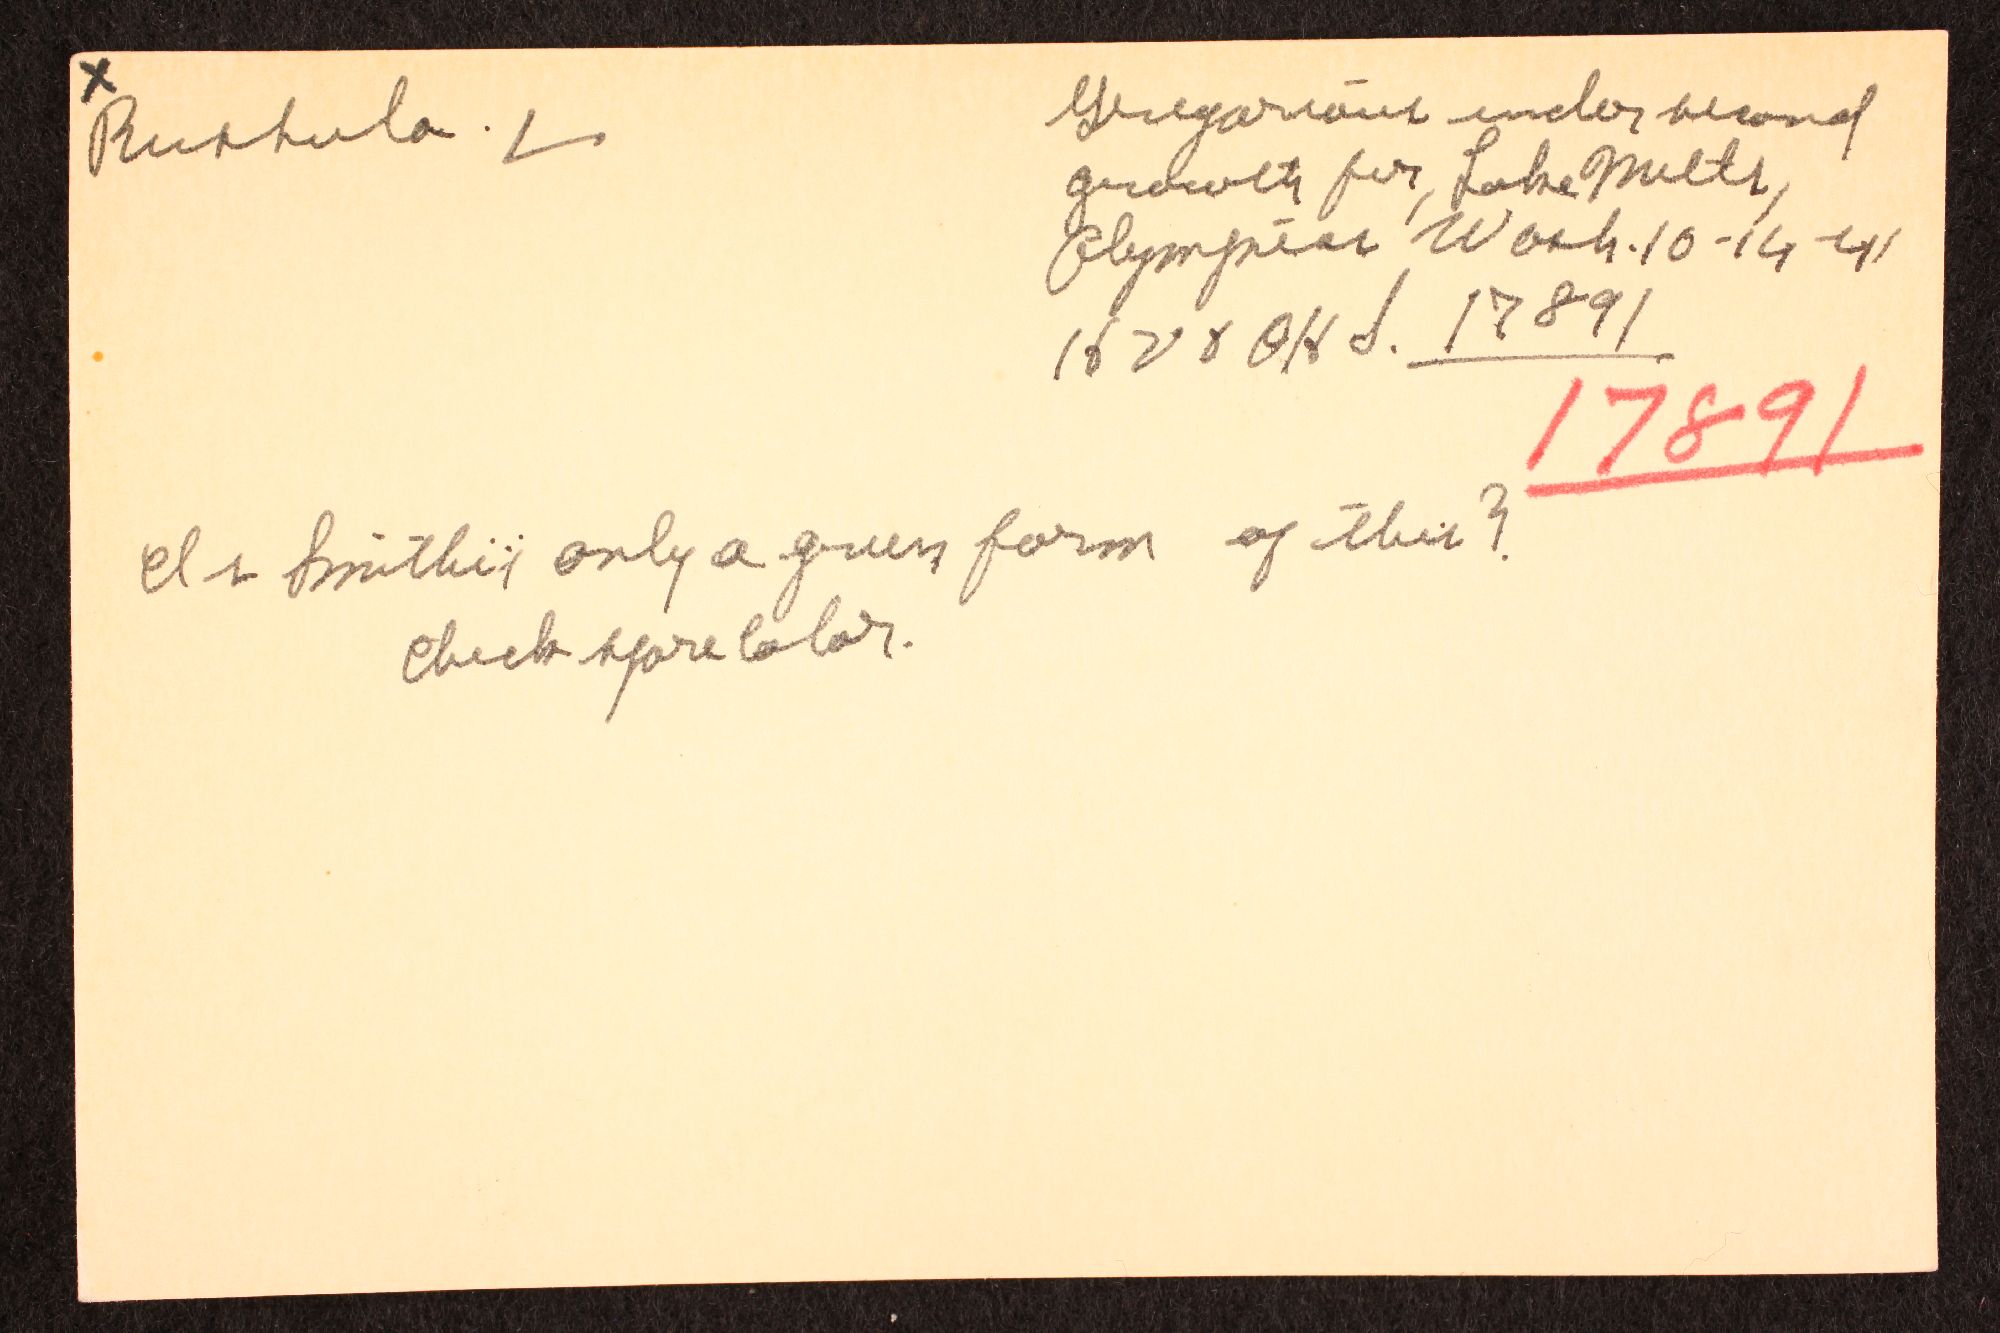 x
Russula.
Gregarious under second
growth fir, Lake Mills,
Olympics Wash. 10-14-41
17891
17891
Is Smithii only a green form of this?
Check spore color.